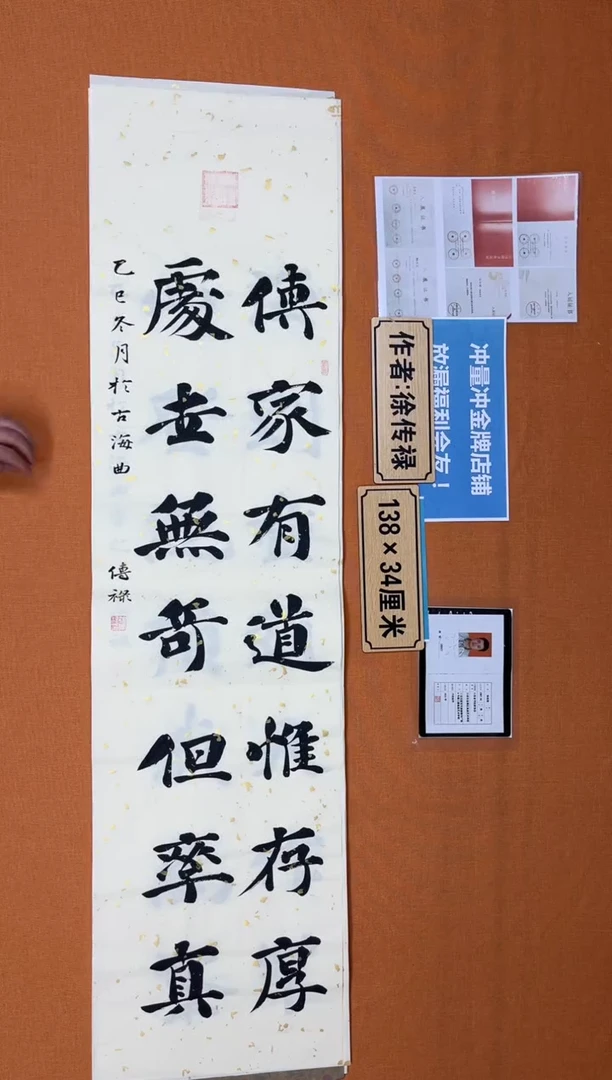 傳家有道惟存厚
處世無奇但率真
乙巳冬月於古海曲
傳祿
作者:徐传禄
138×34厘米
冲量冲金牌店铺
放漏福利会友!